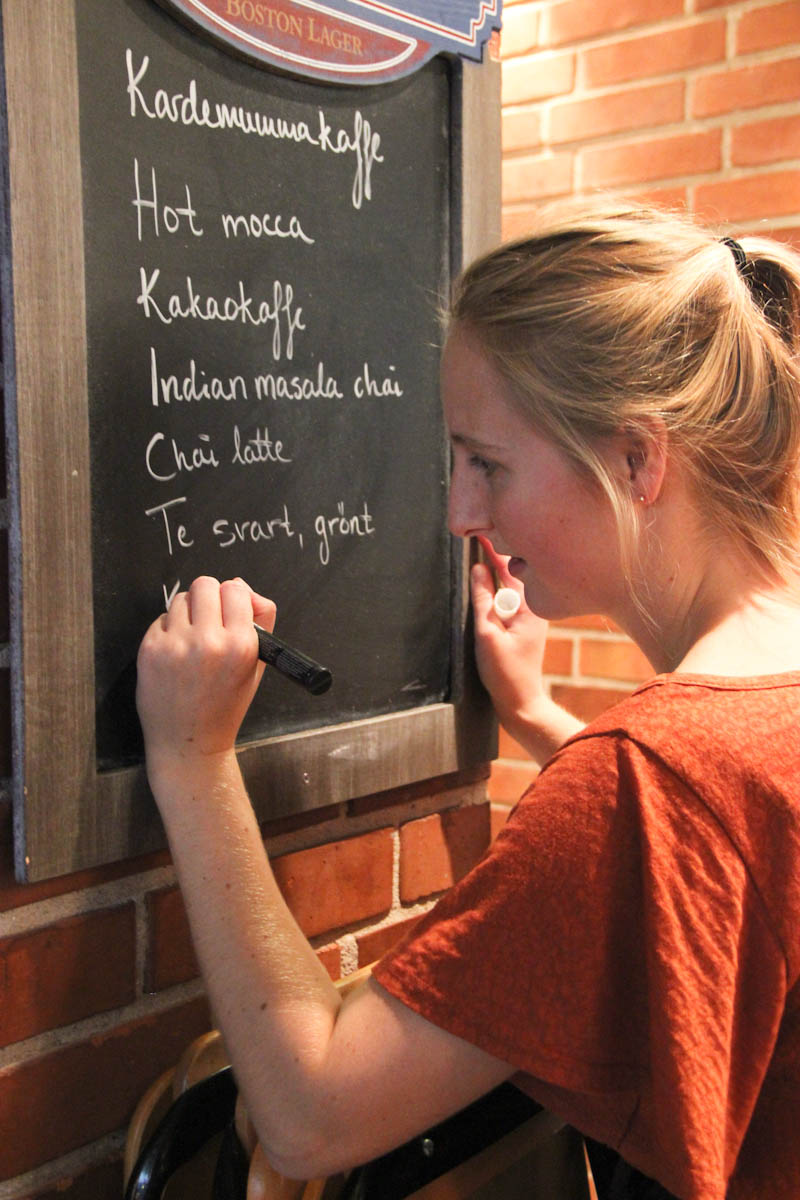 BOSTON LAGER
Kardemummakaffe
Hot mocca
Kakaokaffe
Indian masala chai
Chai latte
Te svart, grönt